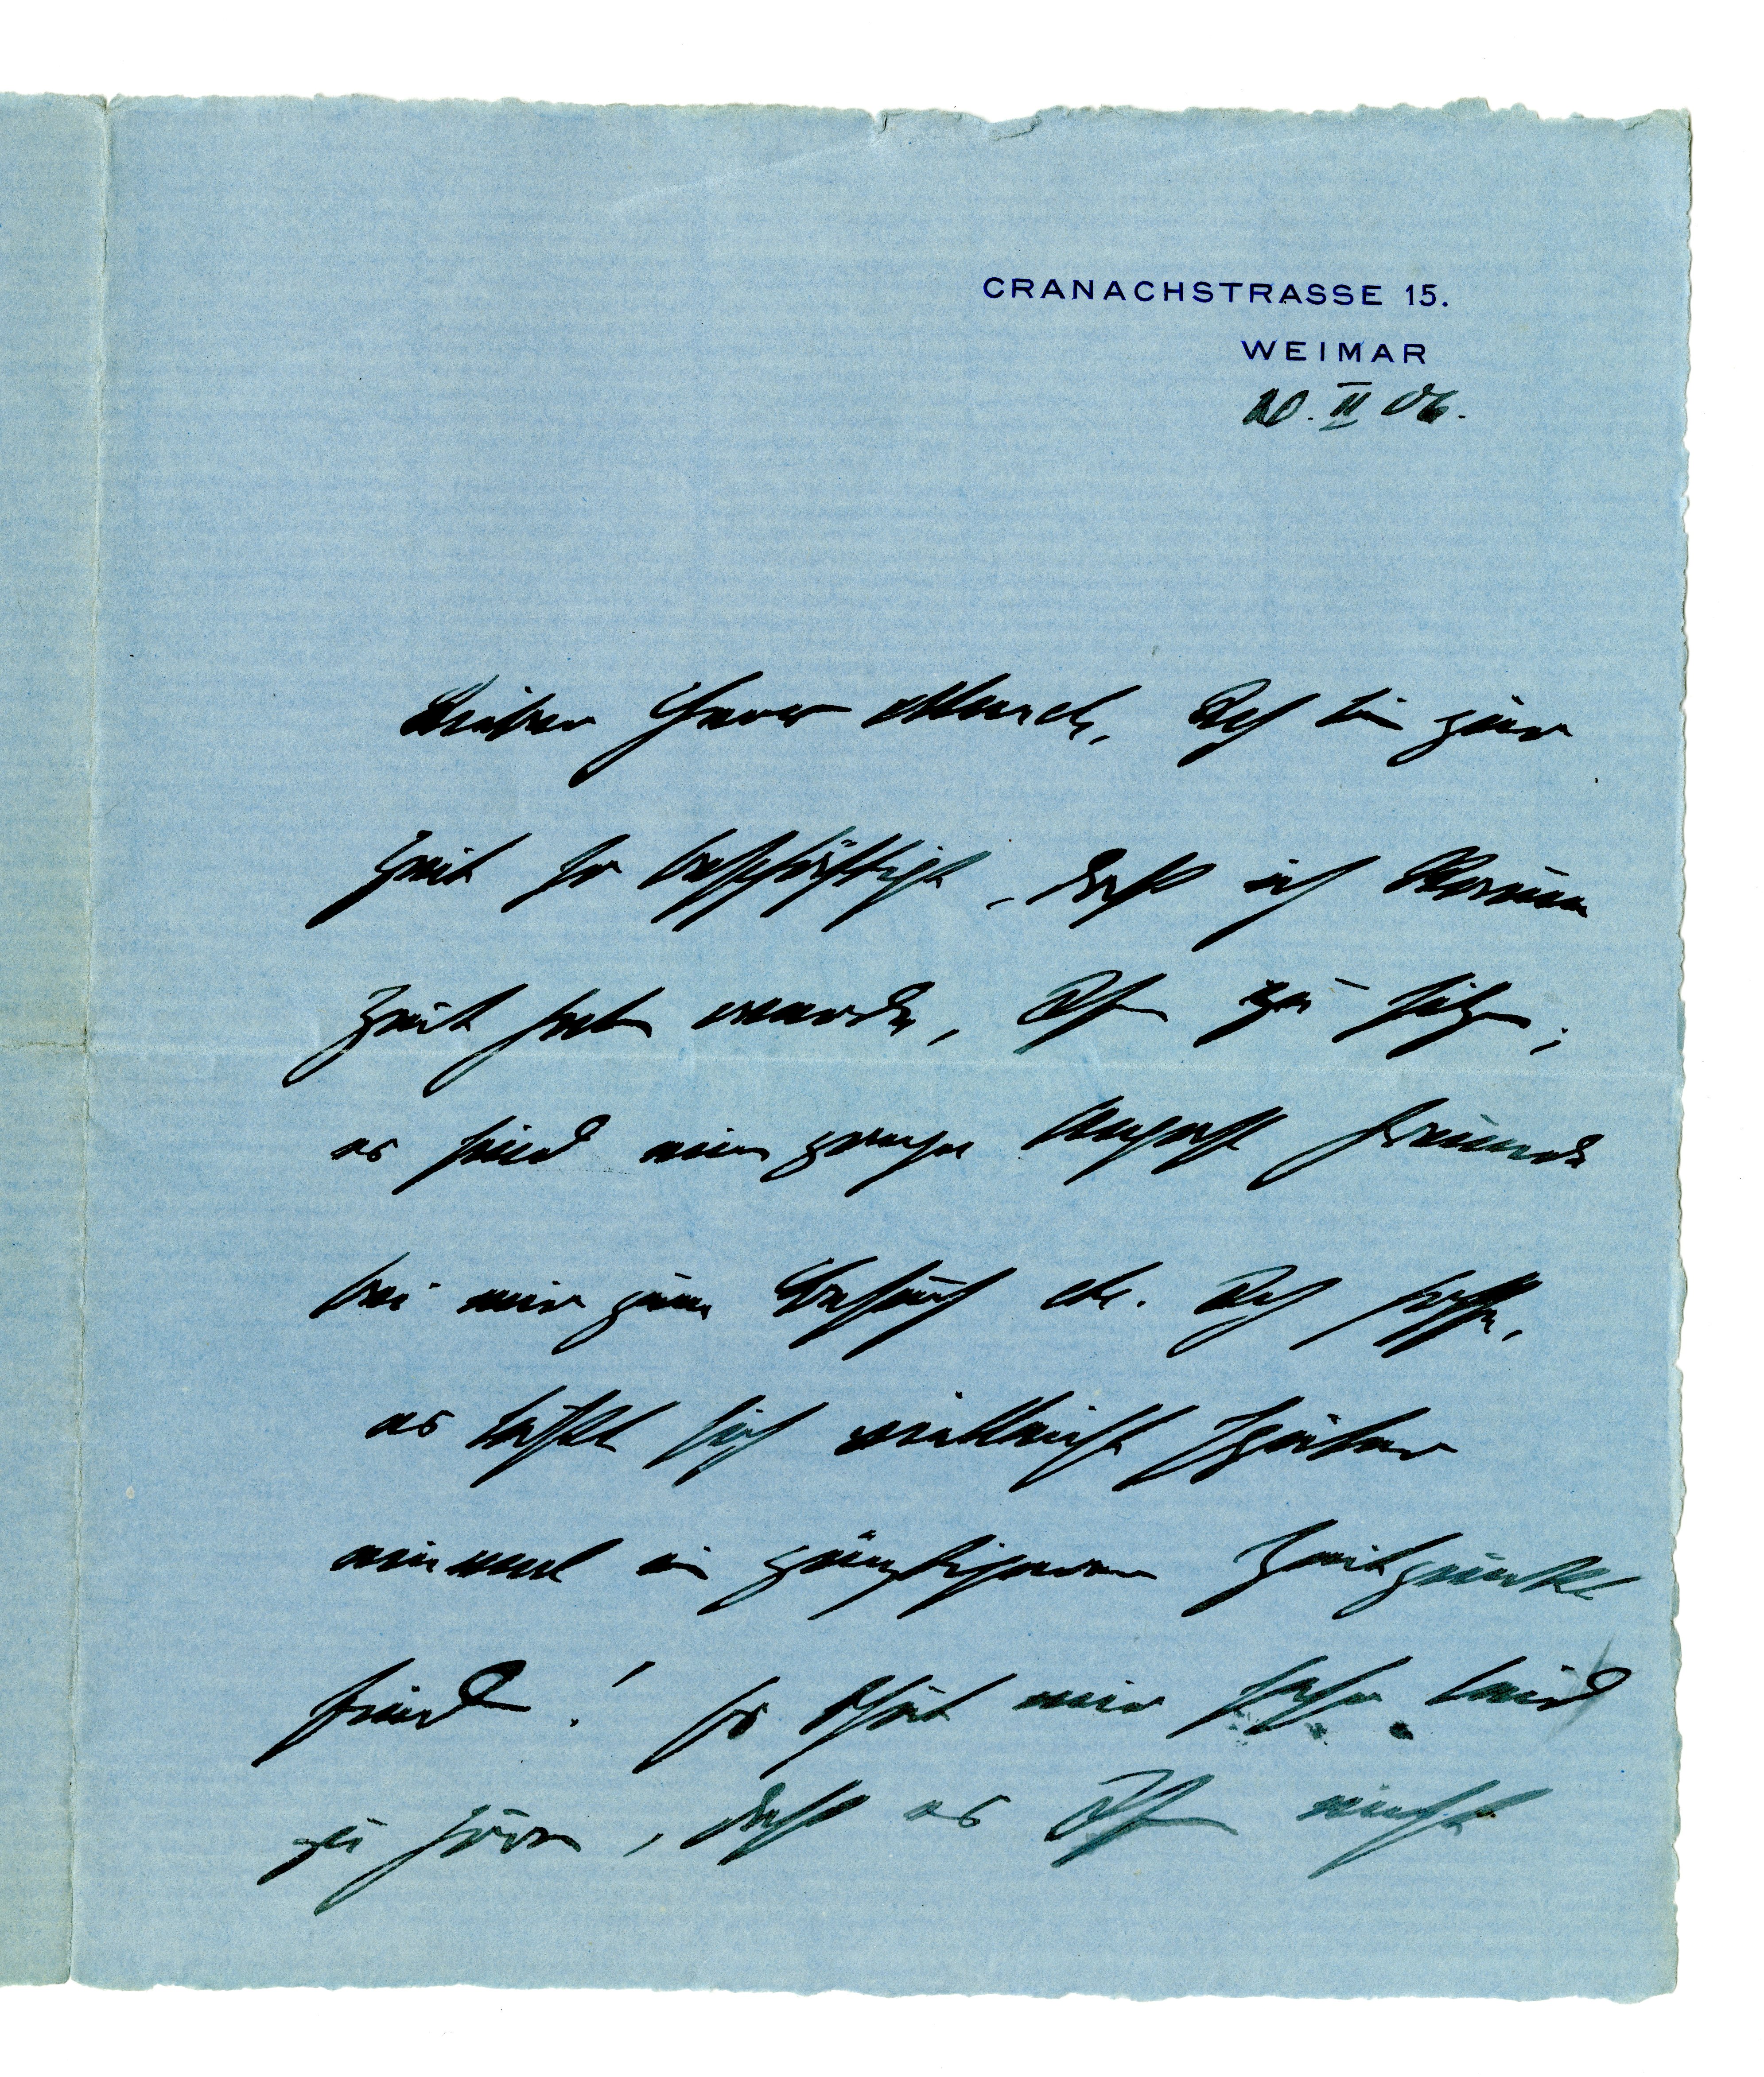 CRANACHSTRASSE 15.
WEIMAR
20. II 06.
Lieber Herr Munch, Ich bin zur
Zeit so beschäftigt, dass ich kaum
Zeit haben werde, Ihnen zu sitzen;
es sind eine ganze Anzahl Freunde
bei mir zum Besuch etc. Ich hoffe,
es lässt sich vielleicht später
einmal ein günstigerer Zeitpunkt
finden! Es thut mir sehr leid
zu hören, dass es Ihnen nicht